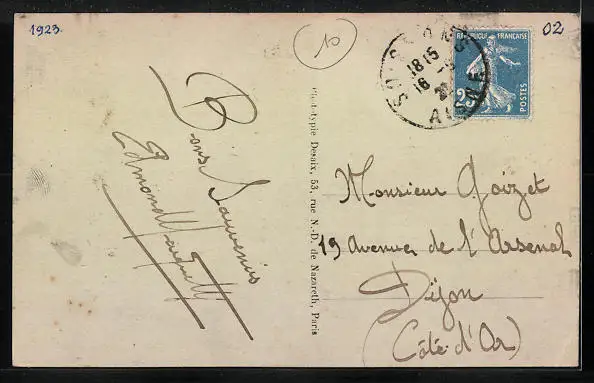 1923
10
02
SOISSONS
18 15
16
AISNE
REPUBLIQUE FRANÇAISE
25
POSTES
Bons Souvenirs
Edmond
Phototypie Desaix, 53, rue N.-D. de Nazareth, Paris
Monsieur Goizet
19 avenue de l'Arsenal
Dijon
(Côte d'Or)